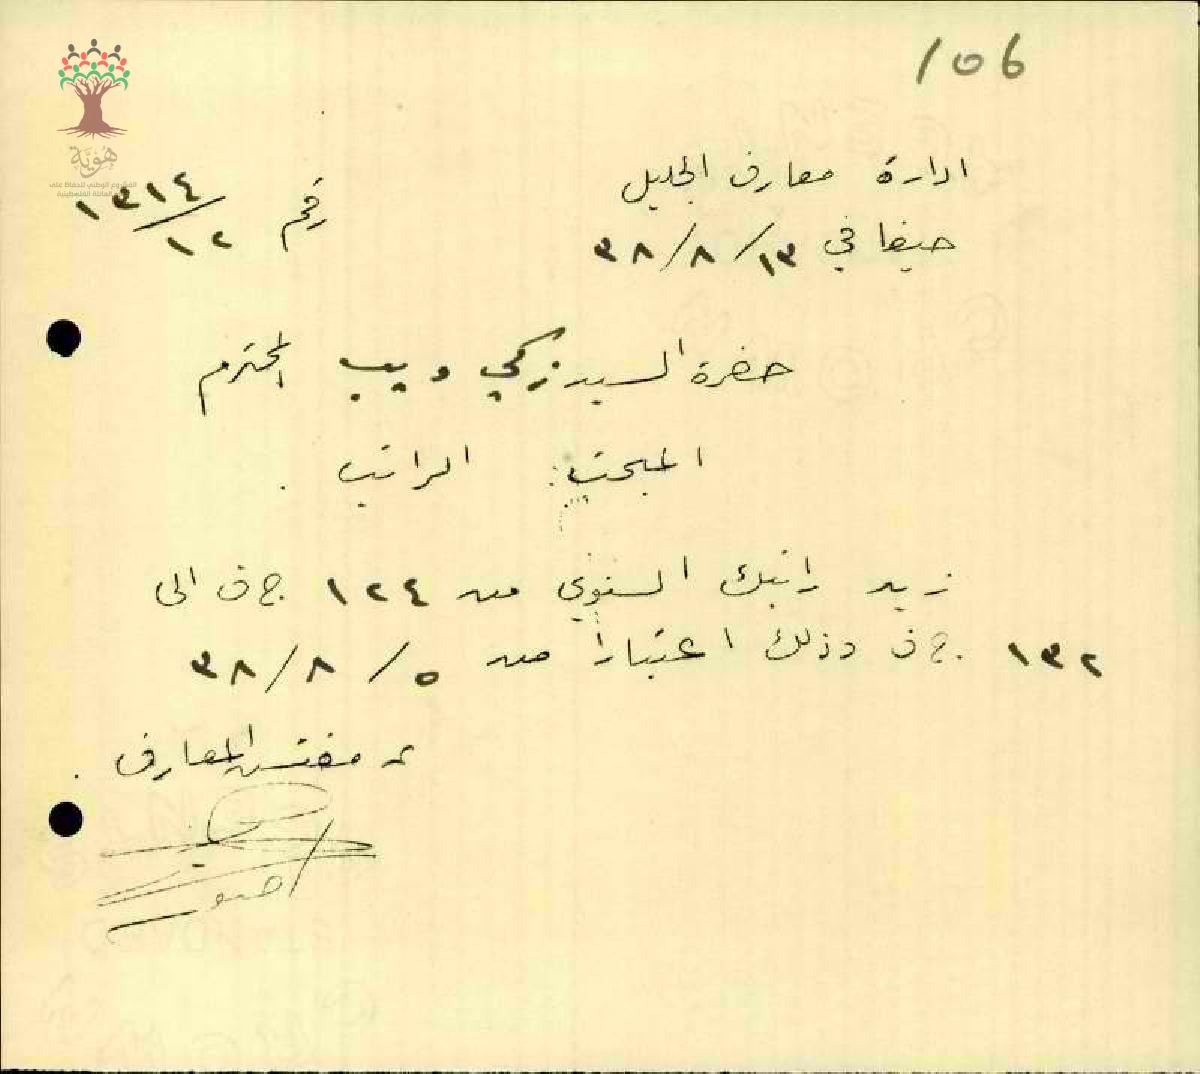 106
هوية
المشروع الوطني للحفاظ على
العائلة الفلسطينية
ادارة معارف الجليل
حيفا في ١٣/٨/٣٨
رقم ١٣١٤/١٢
حضرة السيد زكي ويب المحترم
المبحث: الراتب.
زيد راتبك السنوي من ١٢٤ ج ف الى
١٣٢ ج ف وذلك اعتباراً من ٥/٨/٣٨
مفتش المعارف.